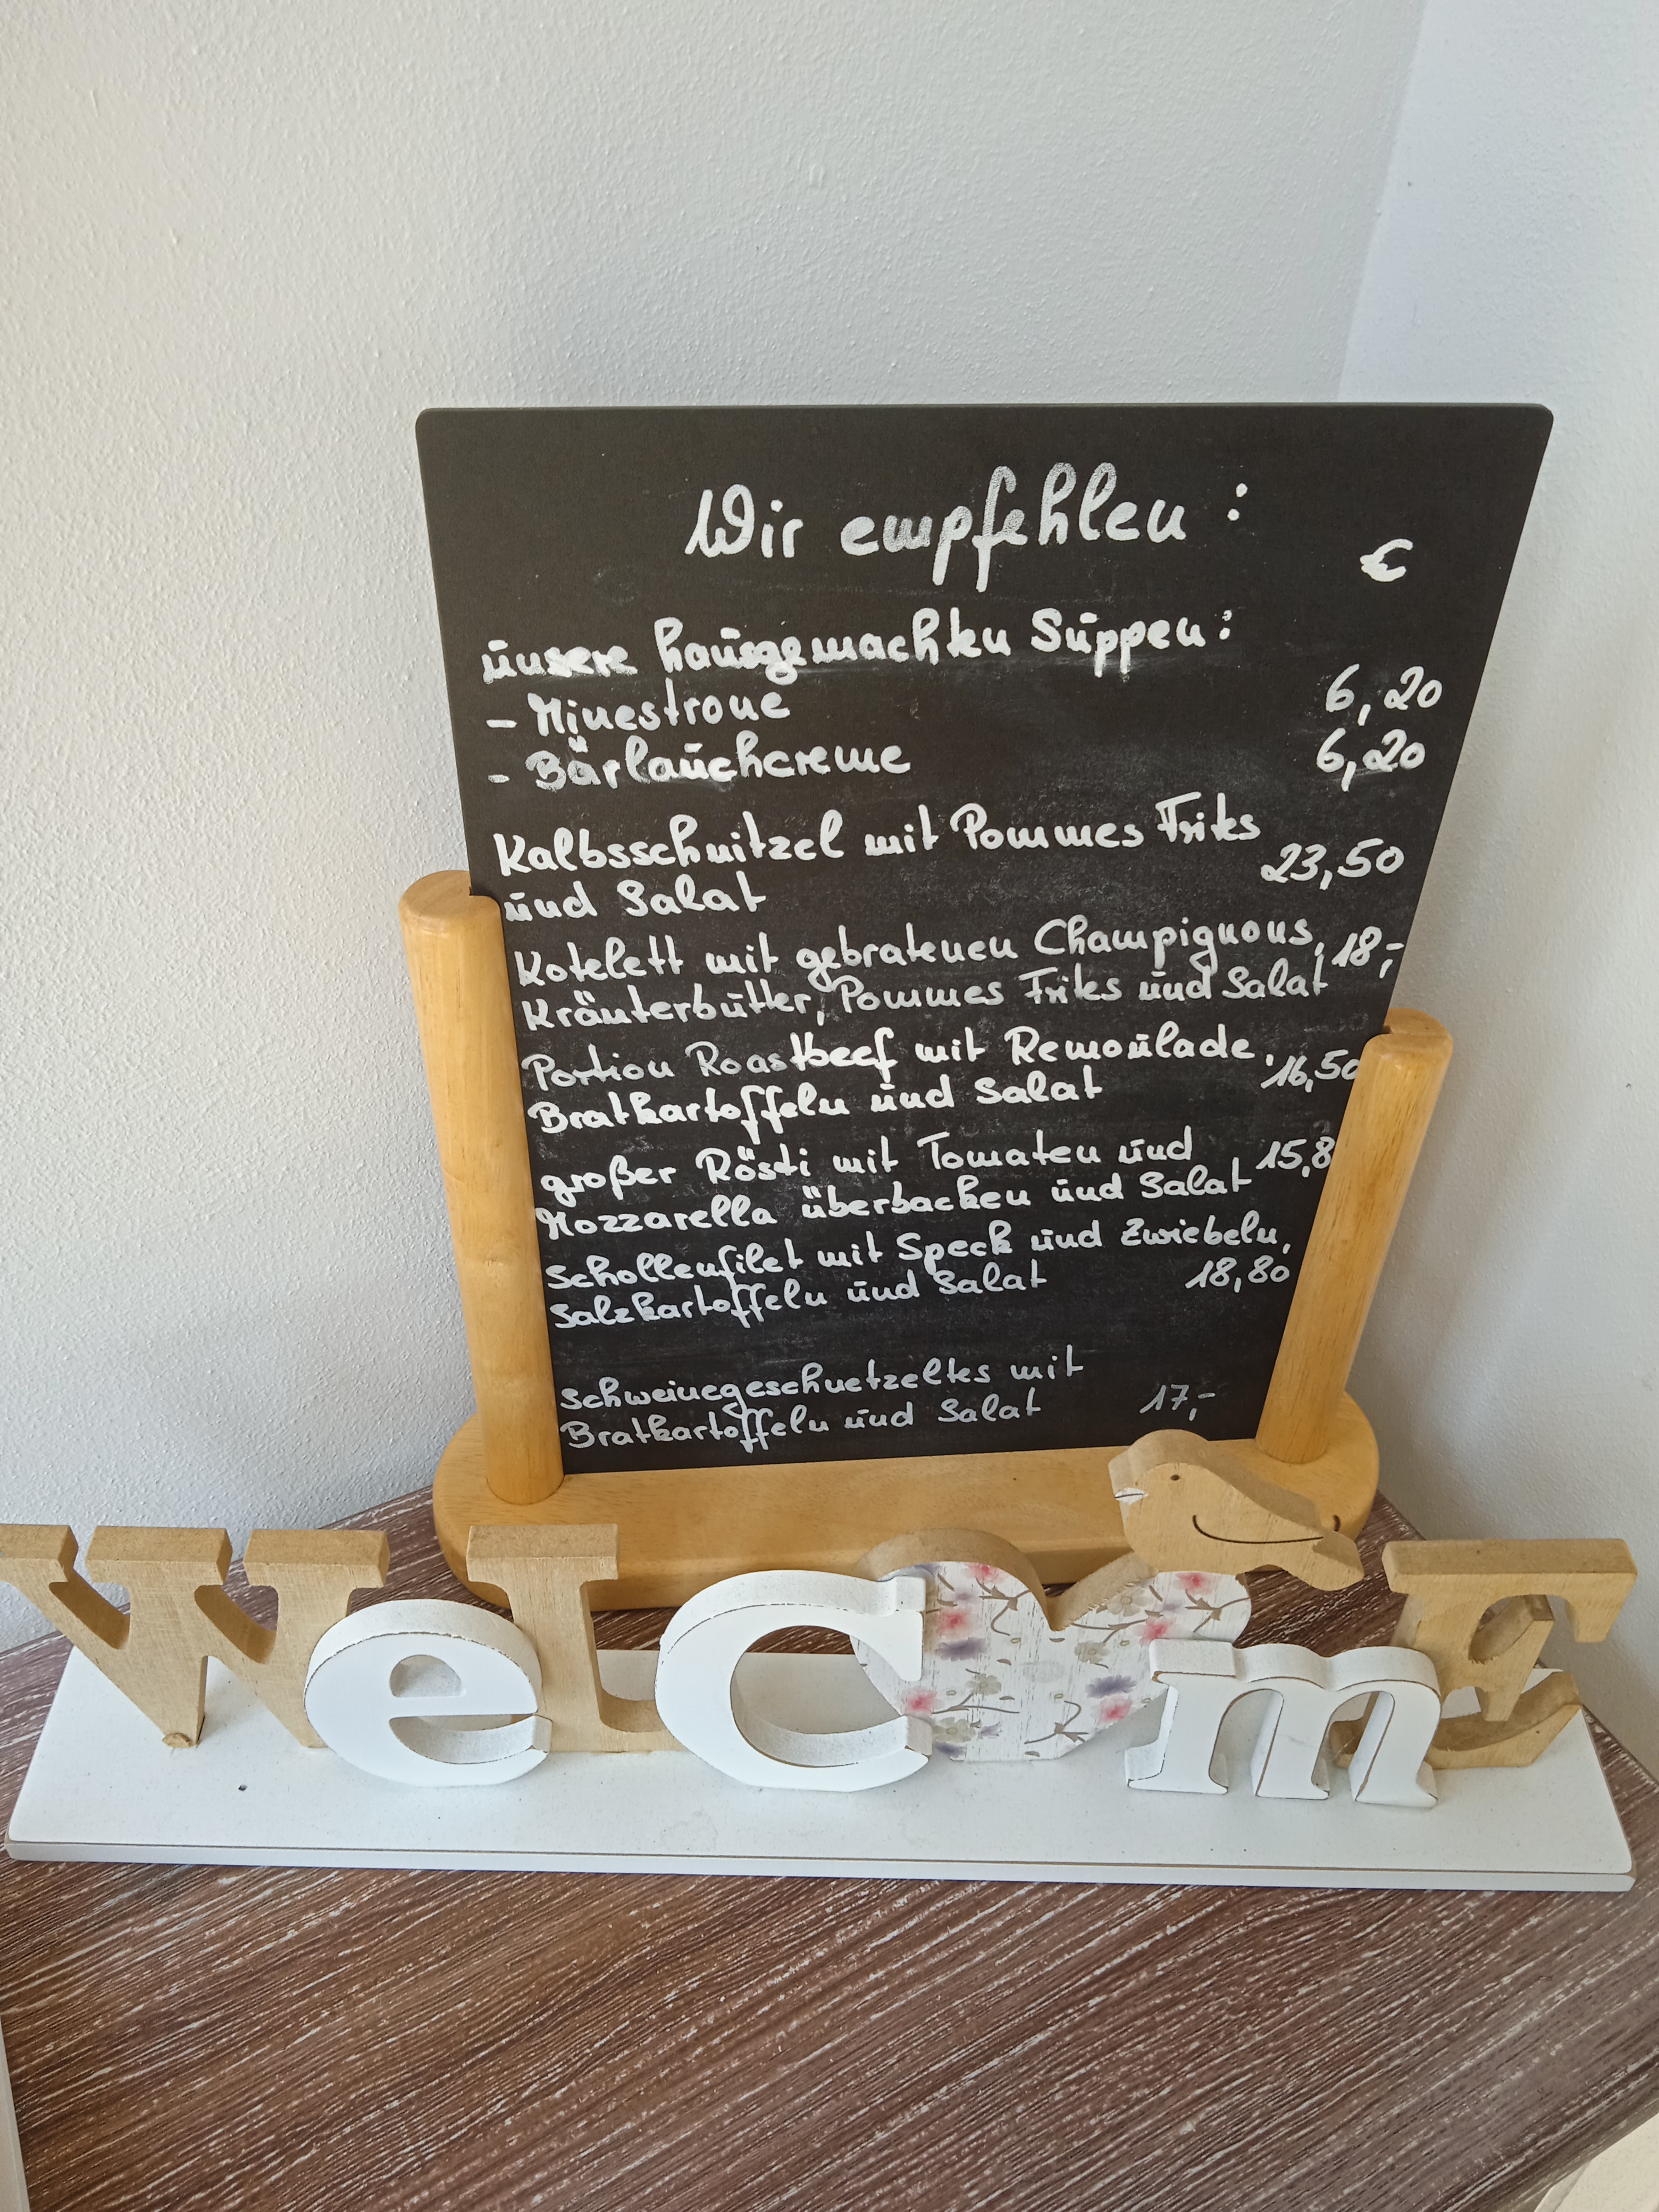 Wir empfehlen:
€
unsere hausgemachten Suppen:
- Minestrone 6,20
- Bärlauchcreme 6,20
Kalbsschnitzel mit Pommes Frites
und Salat 23,50
Kotelett mit gebratenen Champignons, 18,-
Kräuterbutter, Pommes Frites und Salat
Portion Roastbeef mit Remoulade, 16,50
Bratkartoffeln und Salat
großer Rösti mit Tomaten und 15,8
Mozzarella überbacken und Salat
Schollenfilet mit Speck und Zwiebeln,
Salzkartoffeln und Salat 18,80
Schweinegeschnetzeltes mit
Bratkartoffeln und Salat 17,-
WelCmE